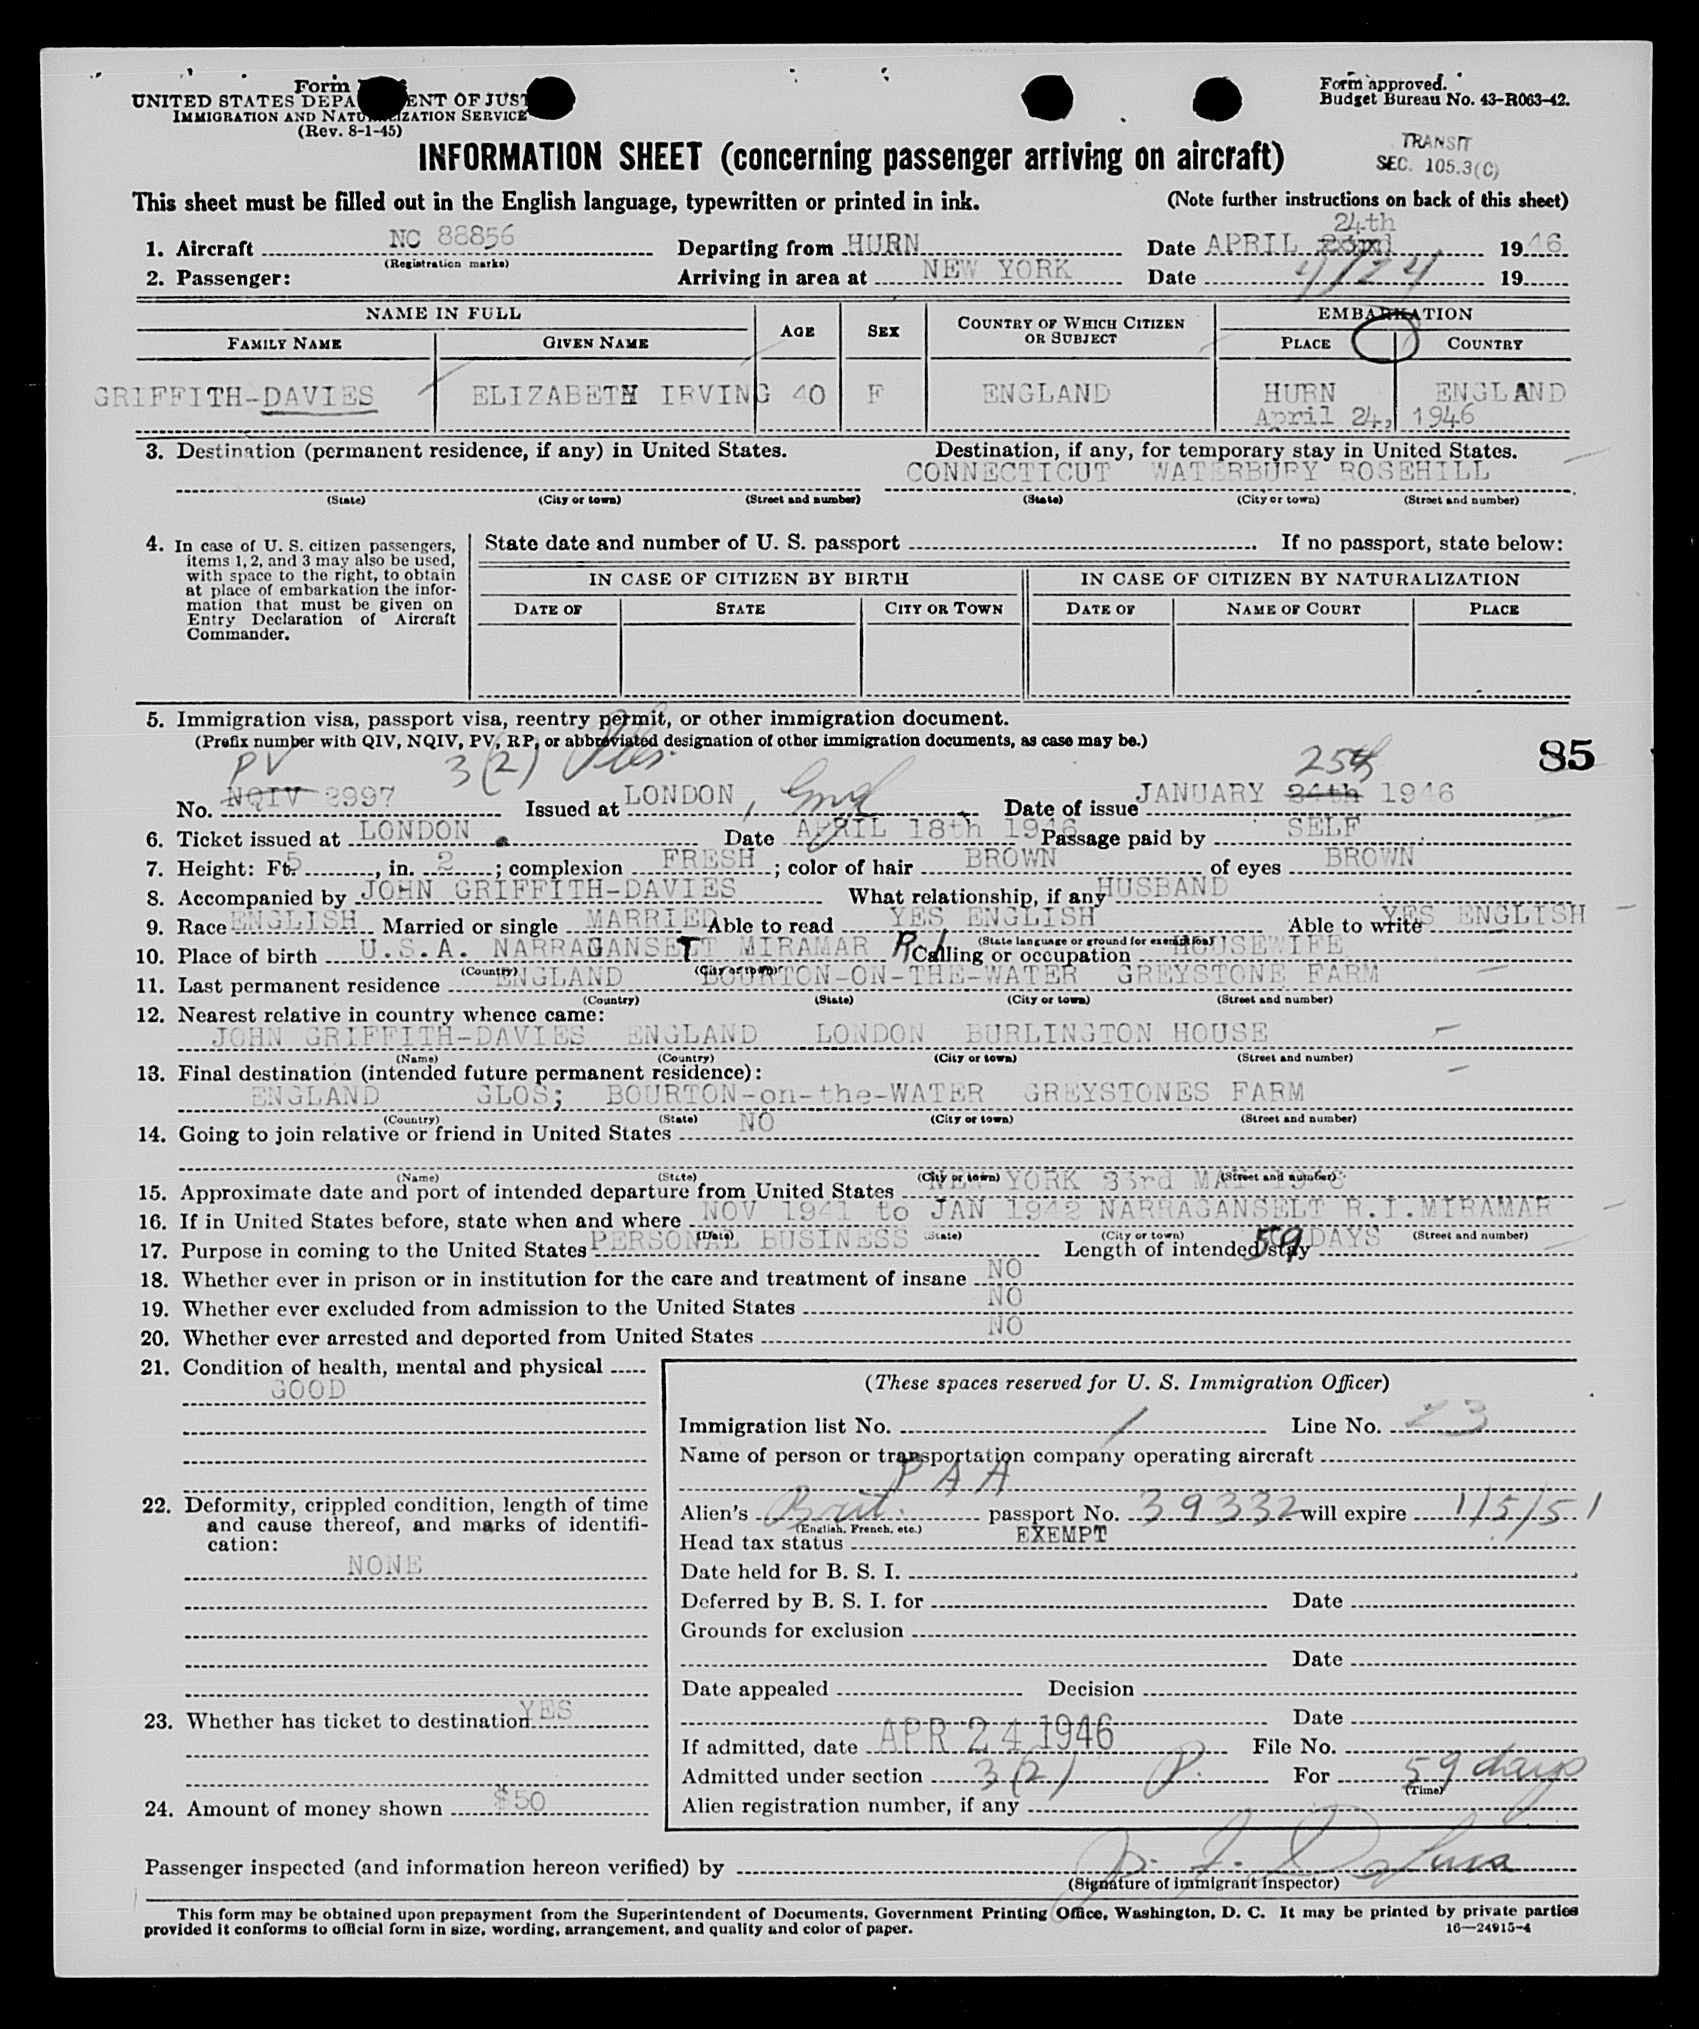 Form
UNITED STATES DEPA ENT OF JUST
IMMIGRATION AND NATURALIZATION SERVICE
(Rev. 8-1-45)
Form approved.
Budget Bureau No. 43-R063-42.
INFORMATION SHEET (concerning passenger arriving on aircraft)
TRANSIT
SEC. 105.3(C)
This sheet must be filled out in the English language, typewritten or printed in ink. (Note further instructions on back of this sheet)
24th
1. Aircraft NC 88856 Departing from HURN Date APRIL 23rd 1946
(Registration marks)
2. Passenger: Arriving in area at NEW YORK Date 4/24 19
NAME IN FULL AGE SEX COUNTRY OF WHICH CITIZEN OR SUBJECT EMBARKATION
FAMILY NAME GIVEN NAME PLACE COUNTRY
GRIFFITH-DAVIES ELIZABETH IRVING 40 F ENGLAND HURN ENGLAND
April 24, 1946
3. Destination (permanent residence, if any) in United States. Destination, if any, for temporary stay in United States.
CONNECTICUT WATERBURY ROSEHILL
(State) (City or town) (Street and number) (State) (City or town) (Street and number)
4. In case of U. S. citizen passengers, items 1, 2, and 3 may also be used, with space to the right, to obtain at place of embarkation the information that must be given on Entry Declaration of Aircraft Commander.
State date and number of U. S. passport If no passport, state below:
IN CASE OF CITIZEN BY BIRTH IN CASE OF CITIZEN BY NATURALIZATION
DATE OF STATE CITY OR TOWN DATE OF NAME OF COURT PLACE
5. Immigration visa, passport visa, reentry permit, or other immigration document.
(Prefix number with QIV, NQIV, PV, RP, or abbreviated designation of other immigration documents, as case may be.)
85
PV 3(2) 25th
No. NQIV 2997 Issued at LONDON, Date of issue JANUARY 24th 1946
6. Ticket issued at LONDON Date APRIL 18th 1946 Passage paid by SELF
7. Height: Ft. 5, in. 2; complexion FRESH; color of hair BROWN of eyes BROWN
8. Accompanied by JOHN GRIFFITH-DAVIES What relationship, if any HUSBAND
9. Race ENGLISH Married or single MARRIED Able to read YES ENGLISH Able to write YES ENGLISH
(State language or ground for exemption)
10. Place of birth U.S.A. NARRAGANSETT MIRAMAR R.I. Calling or occupation HOUSEWIFE
(Country) (City or town)
11. Last permanent residence ENGLAND BOURTON-ON-THE-WATER GREYSTONE FARM
(Country) (State) (City or town) (Street and number)
12. Nearest relative in country whence came:
JOHN GRIFFITH-DAVIES ENGLAND LONDON BURLINGTON HOUSE
(Name) (Country) (City or town) (Street and number)
13. Final destination (intended future permanent residence):
ENGLAND GLOS; BOURTON-on-the-WATER GREYSTONES FARM
(Country) (State) (City or town) (Street and number)
14. Going to join relative or friend in United States NO
(Name) (State) (City or town) (Street and number)
15. Approximate date and port of intended departure from United States NEW YORK 23rd MAY
16. If in United States before, state when and where NOV 1941 to JAN 1942 NARRAGANSELT R.I.MIRAMAR
(Date) (State) (City or town) (Street and number)
17. Purpose in coming to the United States PERSONAL BUSINESS Length of intended stay 59 DAYS
18. Whether ever in prison or in institution for the care and treatment of insane NO
19. Whether ever excluded from admission to the United States NO
20. Whether ever arrested and deported from United States NO
21. Condition of health, mental and physical
GOOD
22. Deformity, crippled condition, length of time and cause thereof, and marks of identification:
NONE
23. Whether has ticket to destination YES
24. Amount of money shown $50
(These spaces reserved for U. S. Immigration Officer)
Immigration list No. 1 Line No. 23
Name of person or transportation company operating aircraft
PAA
Alien's Brit. passport No. 39332 will expire 1/5/51
(English, French, etc.)
Head tax status EXEMPT
Date held for B. S. I.
Deferred by B. S. I. for Date
Grounds for exclusion
Date
Date appealed Decision
Date
If admitted, date APR 24 1946 File No.
Admitted under section 3(2) P. For 59 days
(Time)
Alien registration number, if any
Passenger inspected (and information hereon verified) by
(Signature of immigrant inspector)
This form may be obtained upon prepayment from the Superintendent of Documents, Government Printing Office, Washington, D. C. It may be printed by private parties
provided it conforms to official form in size, wording, arrangement, and quality and color of paper. 16—24915-4